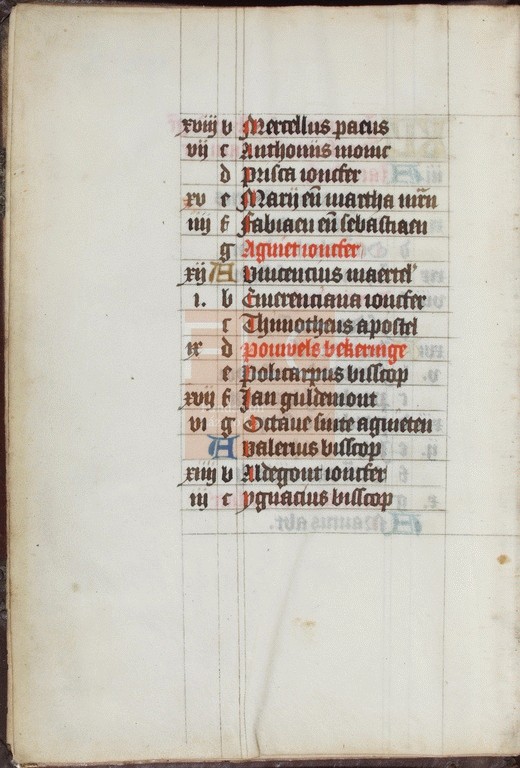 xviij b Mercellus paeus
vij c Anthonius monic
d Prisca ioncfer
xv e Marij eñ martha mrñ
iiij f Fabiaen eñ sebastiaen
g Agniet ioncfer
xij A Vincencius maertel'
i. b Emerenciana ioncfer
c Thimotheus apostel
ix d Pouwels bekeringe
e Policarpus bisscop
xvij f Jan guldemont
vi g Octaue sinte agnieten
A Valerius bisscop
xiiij b Aldegont ioncfer
iij c ygnacius bisscop